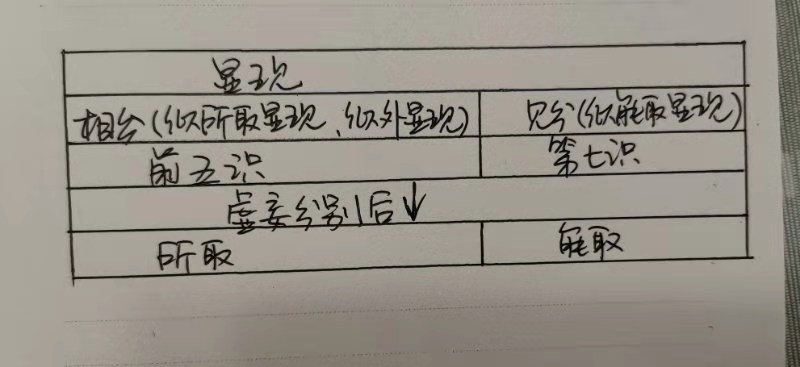 显现
相分(似所取显现、似外显现) 见分(似能取显现)
前五识 第七识
虚妄分别后↓
所取 能取